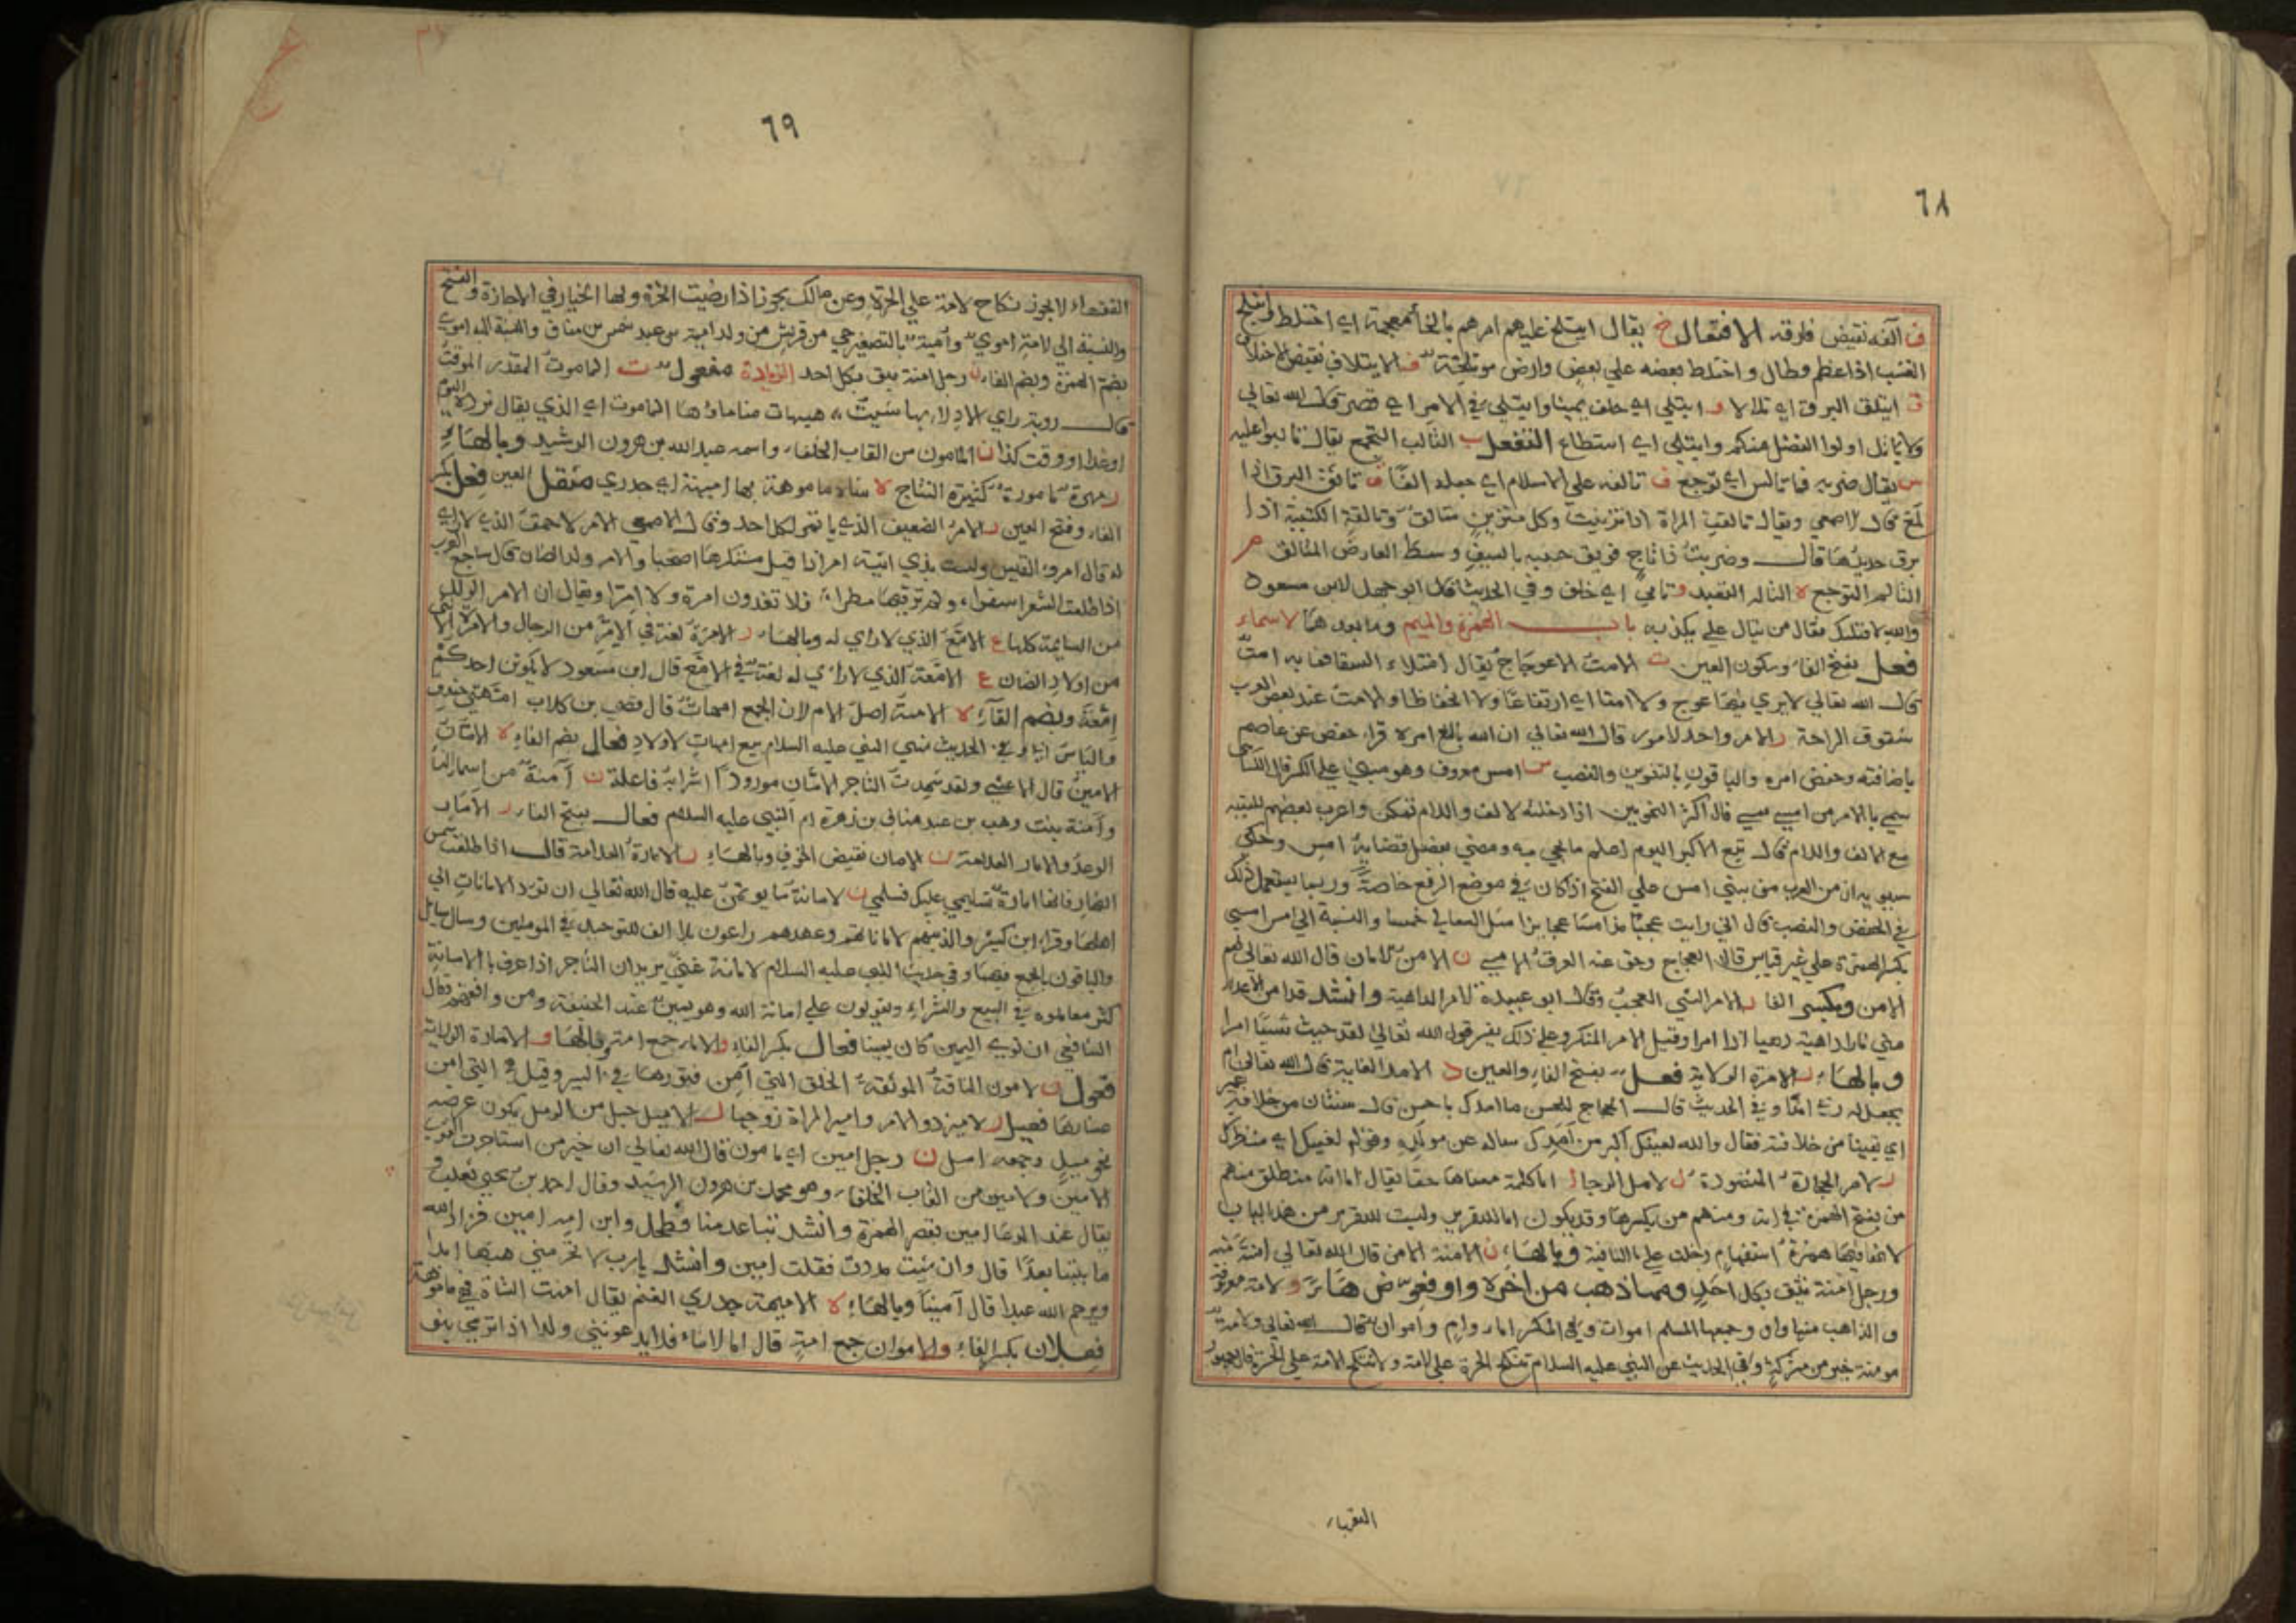 ٦٨
ف آلفه نقيض فارقه الافتعال خ يقال ايتلخ عليهم امرهم بالخاء معجمة اي اختلط وايتلخ
العشب اذا عظم وطال واختلط بعضه علي بعض وارض موتلخة ف الايتلاف نقيض الاختلاف
ق ايتلق البرق اي تلالا و ايتلي اي حلف يمينا وايتلي في الامر اي قصر قال الله تعالي
ولا ياتل اولوا الفضل منكم وايتلي اي استطاع التفعل ب التالب التجمع يقال تالبوا عليه
س يقال ضربه فما تالس اي توجع ف تالفه علي الاسلام اي جعله الفا ق تالق البرق اذا
لمع قال الاصمعي ويقال تالقت المراة اذا تزينت وكل متزين متالق وتالقة الكتيبة اذا
برق حديدها قال وضربت ذا تاج فويق جبينه بالسيف وسط العارض المتالق م
التالم التوجع ه التاله التعبد و تالي اي حلف وفي الحديث قال ابو جهل لابن مسعود
والله لاقتلنك فقال من يتال علي الله يكذبه باب الهمزة والميم وما بعدهما الاسماء
فعل بفتح الفاء وسكون العين ت الامت الاعوجاج يقال امتلاء السقا فما به امت
قال الله تعالي لا يري فيها عوج ولا امتا اي ارتفاعا ولا انخفاظا والامت عند بعض العرب
شقوق الراحة ر الامر واحد الامور قال الله تعالي ان الله بالغ امره قراء حفص عن عاصم
باضافته وخفض امره والباقون بالتنوين والنصب س امس معروف وهو مبني علي الكسر قال الكساي
سمي بالامر من امسي يمسي قال اكثر النحويين اذا دخلته الالف واللام تمكن واعرب بعضهم يبنيه
مع الالف واللام قال تبع الاكبر اليوم اعلم ما يجي به ومضي بفصل قضايه امس وحكي
سيبويه ان من العرب من يبني امس علي الفتح اذا كان في موضع الرفع خاصة وربما يستعمل ذلك
في الخفض والنصب قال اني رايت عجبا مذ امسا عجايزا مثل السعالي خمسا والنسبة الي امس امسي
بكسر الهمزة علي غير قياس قال العجاج وجف عنه العرق الامسي ن الامن الامان قال الله تعالي لهم
الامن وبكسر الفا ر الامر الشي العجب وقال ابو عبيدة الامر الداهية وانشد قد امن الاعداء
مني نارا داهية دهيا ادا امرا وقيل الامر المنكر وعلي ذلك يفسر قول الله تعالي لقد جيت شييا امرا
وبالهاء ر الامرة الولاية فعل بفتح الفاء والعين د الامد الغاية قال الله تعالي ام
يجعل له ربي امدا وفي الحديث قال الحجاج للحسن ما امدك يا حسن قال سنتان من خلافة عمر
اي بقيتا من خلافته فقال والله لعينك اكبر من امدك ساله عن مولده وقوله لعينك اي منظرك
ر الامر الحجارة المنضودة ل الامل الرجا ا اما كلمة معناها حقا يقال اما انه منطلق منهم
من يفتح الهمزة في انه ومنهم من يكسرها وقد يكون اما للتقرير وليست للتقرير من هذا الباب
لانها فيها همزة استفهام دخلت علي ما النافية وبالهاء ن الامنة الامن قال الله تعالي امنة منه
ورجل امنة يثق بكل احد ومما ذهب من اخره واو فعوض هاء و الامة معروفة
والذاهب منها واو وجمعها المسلم اموات وفي المكسر اماء وامٍ واموان قال الله تعالي ولامة
مومنة خير من مشركة وفي الحديث عن النبي عليه السلام تنكح الحرة علي الامة ولا تنكح الامة علي الحرة قال جمهور
الفقهاء
٦٩
الفقهاء لا يجوز نكاح الامة علي الحرة وعن مالك يجوز اذا رضيت الحرة ولها الخيار في الاجازة والفسخ
والنسبة الي الامة اموي وامية بالتصغير حي من قريش من ولد امية بن عبد شمس بن مناف والنسبة اليه اموي
بضم الهمزة وبضم الفاء ن رجل امنة يثق بكل احد الزيادة مفعول ت الماموت المقدر الموقت
قال روبة راي الادلاء بها شتيت هيهات منا ماؤها الماموت اي الذي يقال نرد اليوم
او غدا او وقت كذا ن المامون من القاب الخلفاء واسمه عبد الله بن هرون الرشيد وبالهاء
ر مهرة مامورة كثيرة النتاج ه شاة ماموهة بها اميهة اي جدري مثقل العين فعل بكسر
الفاء وفتح العين ر الامر الضعيف الذي ياتمر لكل احد وقال الاصمعي الامر الاحمق الذي لا راي
له قال امرؤ القيس وليس بذي رثية امر اذا قيد مستكرها اصحبا والامر ولد الضان قال ساجع العرب
اذا طلعت الشعرا سفرا، ولم تر فيها مطرا، فلا تغدون امرة ولا امرا ويقال ان الامر الذكر
من السايمة كلها ع الامع الذي لا راي له وبالهاء ر الامرة لغة في الامر من الرجال والامرة الانثي
من اولاد الضان ع الامعة الذي لا راي له لغة في الامع قال ابن مسعود لا يكونن احدكم
امعة وبضم الفاء ه الامهة اصل الام لان الجمع امهات قال قصي بن كلاب امهتي خندف
والياس ابي وفي الحديث نهي النبي عليه السلام بيع امهات الاولاد فعال بضم الفاء ن الامان
الامين قال الاعشي ولقد شهدت التاجر الامان مورودا شرابه فاعلة ن آمنة من اسماء النساء
وآمنة بنت وهب بن عبد مناف بن زهرة ام النبي عليه السلام فعال بفتح الفاء ر الامار
الوعد والامار العلامة ن الامان نقيض الخوف وبالهاء ر الامارة العلامة قال اذا طلعت شمس
النهار فانها امارة تسليمي عليك فسلمي ن الامانة ما يوتمن عليه قال الله تعالي ان تودوا الامانات الي
اهلها وقراء ابن كثير والذين هم لامانتهم وعهدهم راعون بلا الف للتوحيد في المومنين وسال سايل
والباقون بالجمع فيهما وفي حديث النبي عليه السلام الامانة غني يريد ان التاجر اذا عرف بالامانة
كثر معاملوه في البيع والشراء ويقولون علي امانة الله وهو يمين عند ابي حنيفة ومن وافقهم وقال
الشافعي ان نوي اليمين كان يمينا فعال بكسر الفاء و الاماء جمع امة وبالهاء ر الامارة الولاية
فعول ن الامون الناقة الموثقة الخلق التي امن فتورها في السير وقيل هي التي امن
عثارها فعيل ر الامير ذو الامر وامير المراة زوجها ل الاميل جبل من الرمل يكون عرضه
نحو ميل وجمعه امل ن رجل امين اي مامون قال الله تعالي ان خير من استاجرت القوي
الامين والامين من القاب الخلفاء وهو محمد بن هرون الرشيد وقال احمد بن يحيي ثعلب
يقال عند الدعا امين بقصر الهمزة وانشد تباعد منا فطحل وابن امه امين فزاد الله
ما بيننا بعدا قال وان شيت مددت فقلت امين وانشد يا رب لا تحرمني حبها ابدا
ويرحم الله عبدا قال آمينا وبالهاء ه الاميهة جدري الغنم يقال امهت الشاة فهي ماموهة
فعلان بكسر الفاء و الاموان جمع امة قال اما الاماء فلا يدعونني ولدا اذا ترامي بنو